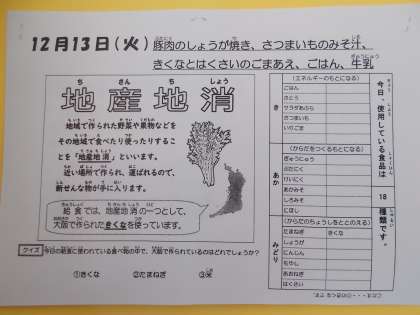 12月13日(火) 豚肉のしょうが焼き、さつまいものみそ汁、
きくなとはくさいのごまあえ、ごはん、牛乳
地産地消
ち さん ち しょう
地域で作られた野菜や果物などを
その地域で食べたり使ったりするこ
とを「地産地消」といいます。
近い場所で作られ、運ばれるので、
新せんな物が手に入ります。
給食では、地産地消の一つとして、
大阪で作られたきくなを使っています。
クイズ 今日の給食に使われている食べ物の中で、大阪で作られているのはどれでしょうか？
①きくな ②たまねぎ ③米
今日、使用している食品は 18 種類です。
(エネルギーのもとになる)
き
ごはん
さとう
サラダあぶら
さつまいも
いりごま
(からだをつくるもとになる)
あか
ぎゅうにゅう
ぶたにく
けいにく
あかみそ
しろみそ
にぼし
(からだのちょうしをととのえる)
みどり
たまねぎ きくな
しょうが
にんじん
もやし
あおねぎ
はくさい